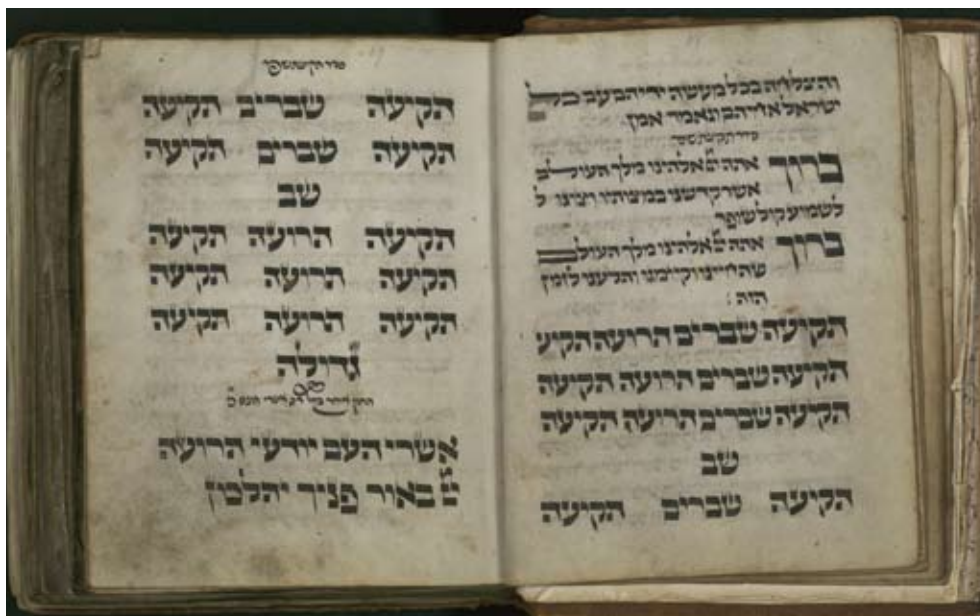 והצלחה בכל מעשה ידיהם עם כל
ישראל אחיהם ונאמר אמן.
סדר תקיעת שופר
ברוך אתה יי אלהינו מלך העולם
אשר קדשנו במצותיו וציונו ל
לשמוע קול שופר
ברוך אתה יי אלהינו מלך העול
שהחיינו וקיימנו והגיענו לזמן
הזה :
תקיעה שברים תרועה תקיע
תקיעה שברים תרועה תקיעה
תקיעה שברים תרועה תקיעה
שב
תקיעה שברים תקיעה
סדר תקיעת שופר
תקיעה שברים תקיעה
תקיעה שברים תקיעה
שב
תקיעה תרועה תקיעה
תקיעה תרועה תקיעה
תקיעה תרועה תקיעה
גדולה
אשרי העם יודעי תרועה
יי באור פניך יהלכון